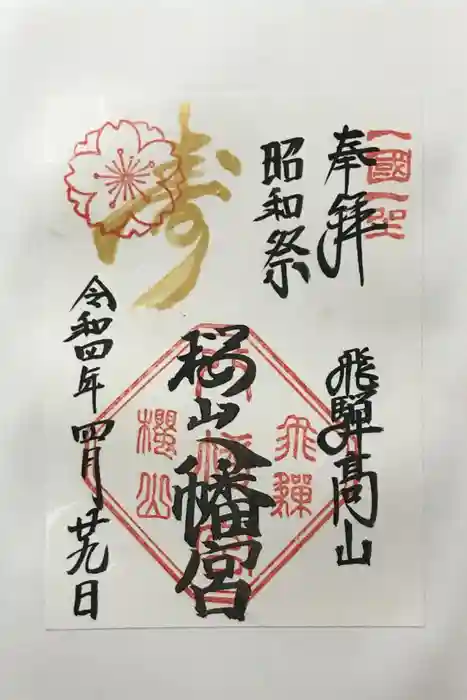 一國一社
奉拝
飛騨高山
昭和祭
壽
桜山八幡宮
飛騨
櫻山
令和四年四月廿九日